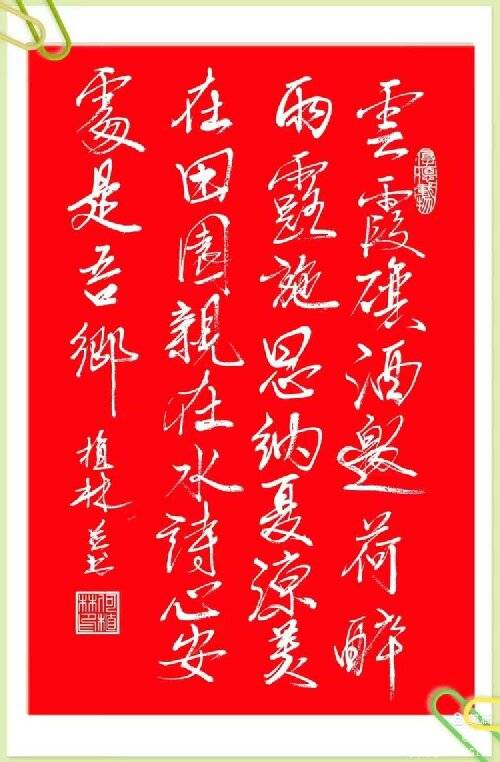 雲霞酒邀荷醉
雨露施恩納夏涼美
在田園親在水詩心安
處是吾鄉
植林
厚德載物
何植林印